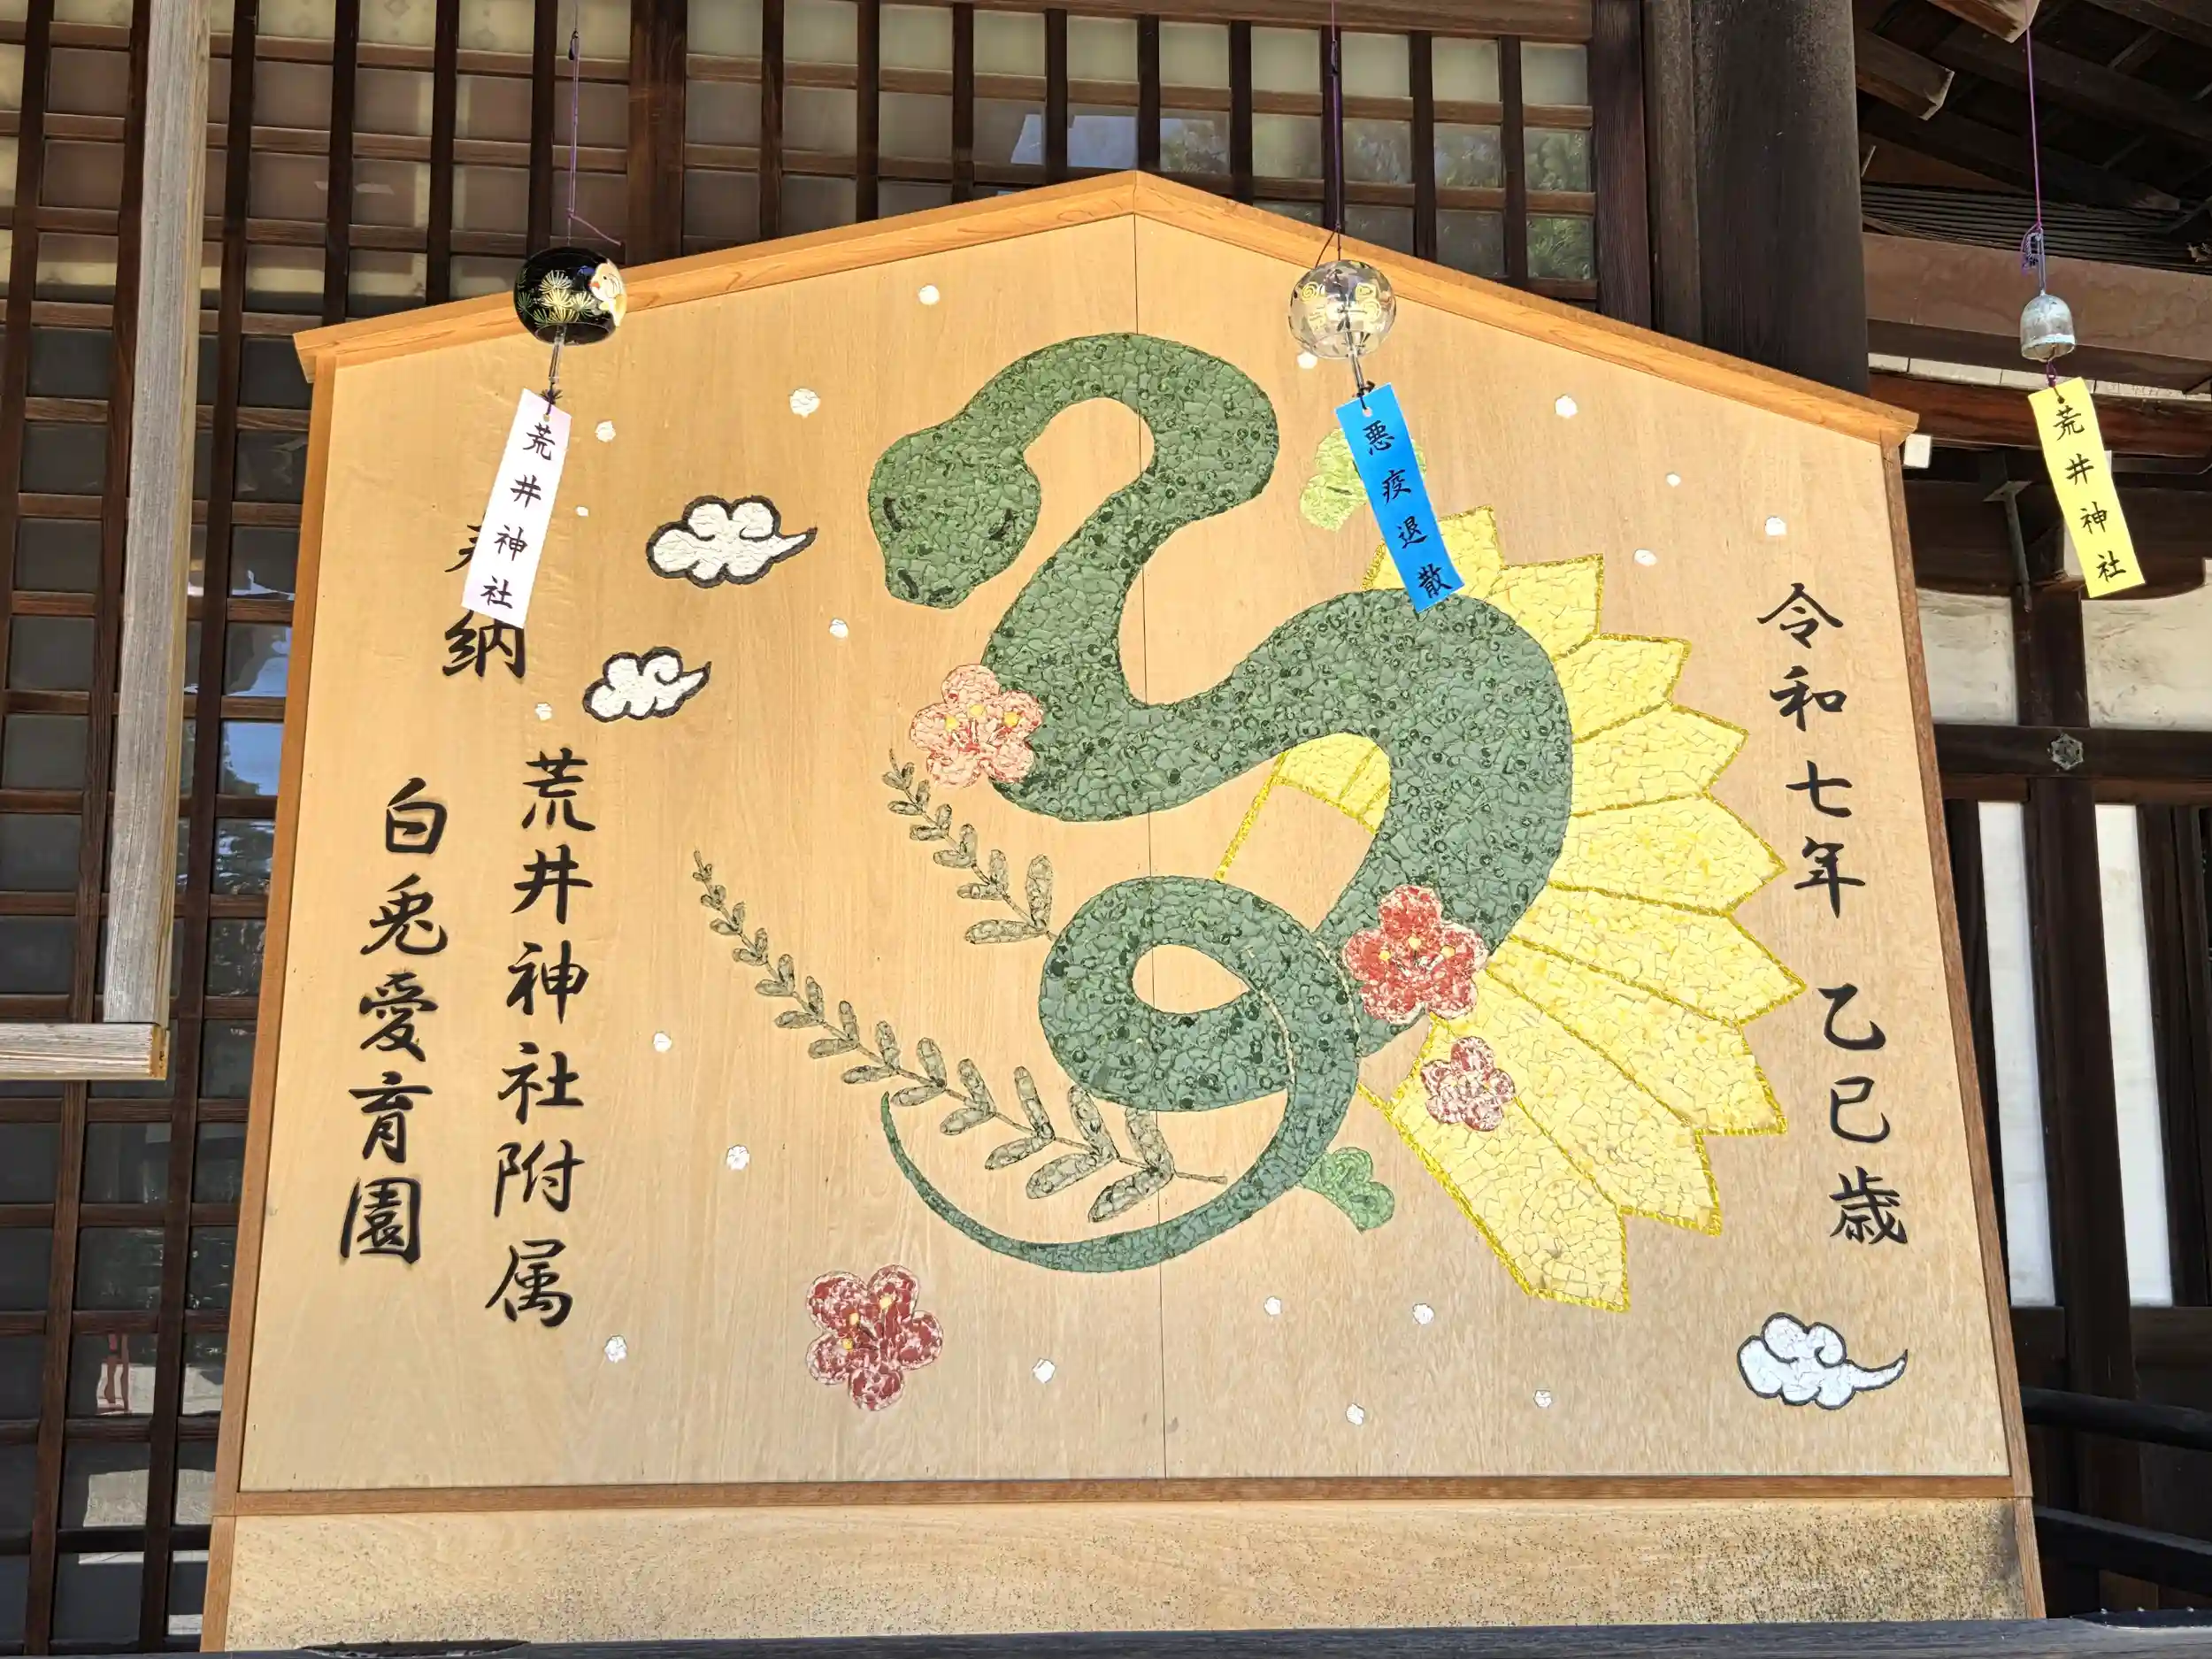 令和七年 乙巳歳
納
荒井神社附属
白兎愛育園
荒井神社
悪疫退散
荒井神社